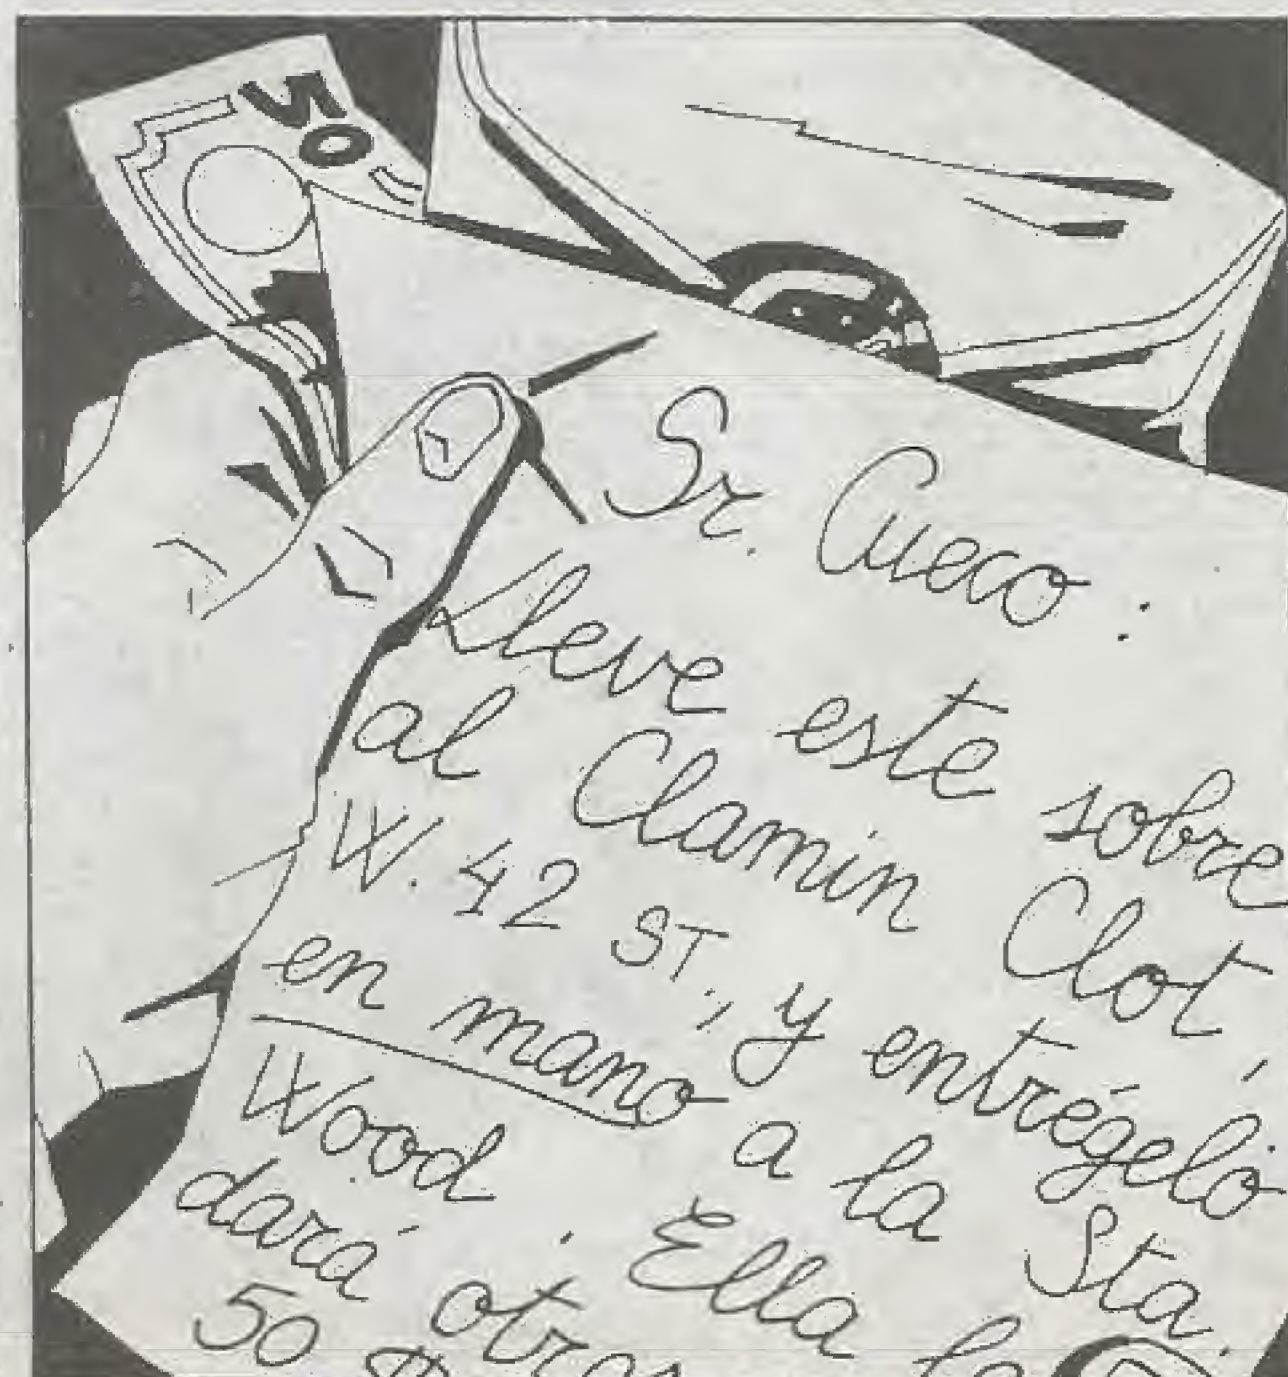 50
Sr. Cueco :
Lleve este sobre
al Clamin Clot,
W. 42 ST., y entrégelo
en mano a la Sta.
Wood. Ella le
dará otros
50 $